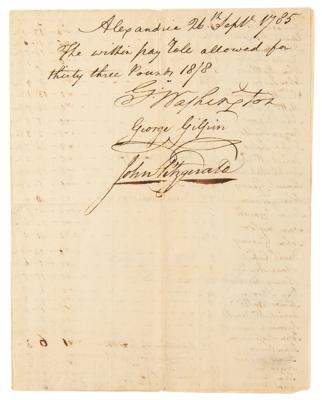 Alexandria 26th Sept. 1785
The within pay Role allowed for
thirty three Pounds 18/8
Go Washington
George Gilpin
John Fitzgerald